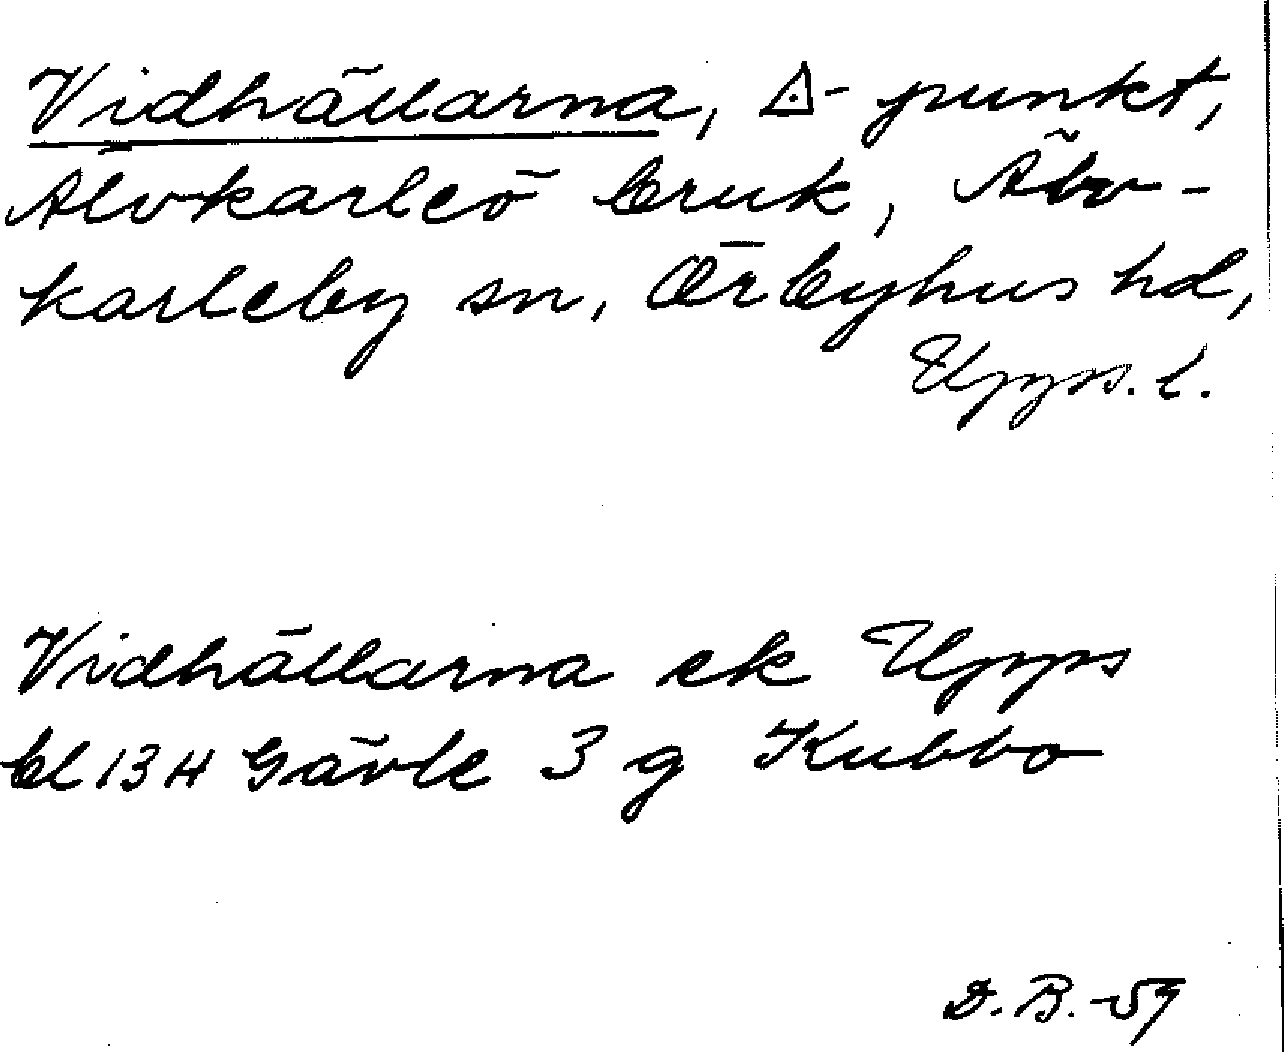 Vidhällarna, △-punkt,
Älvkarleö bruk, Älv-
karleby sn, Örbyhus hd,
Upps. l.
Vidhällarna ek Upps
bl 13 H Gävle 3 g Kubbo
D.B.-59